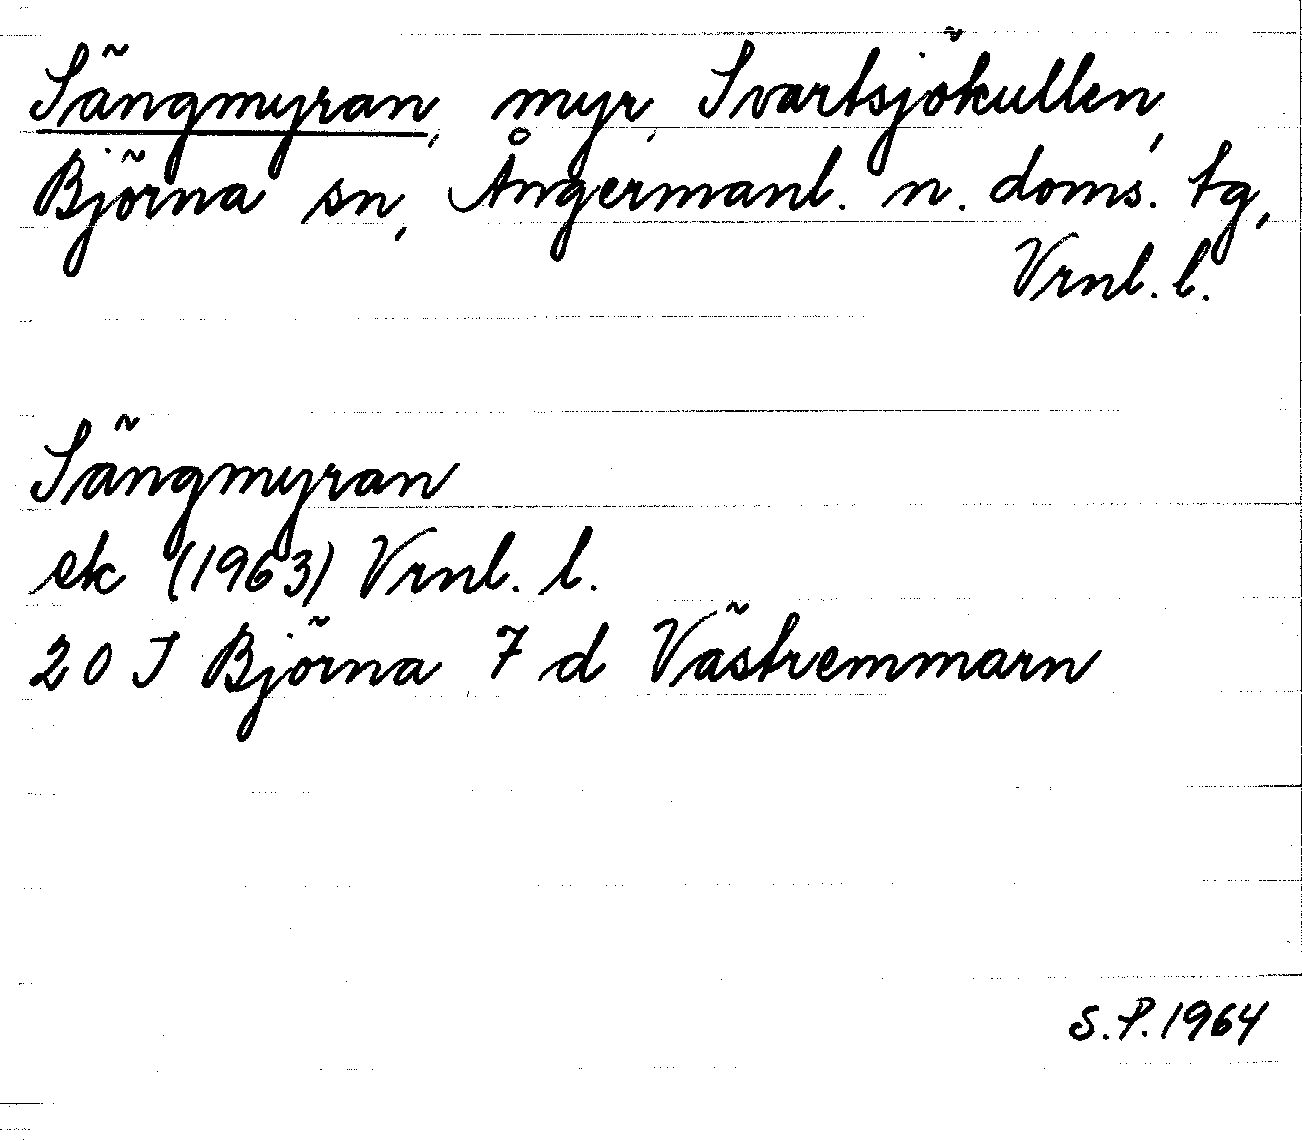 Sängmyran, myr, Svartsjökullen,
Björna sn, Ångermanl. n. doms. tg,
Vrnl. l.
Sängmyran
ek (1963) Vrnl. l.
20 J Björna 7 d Västremmarn
S.P. 1964